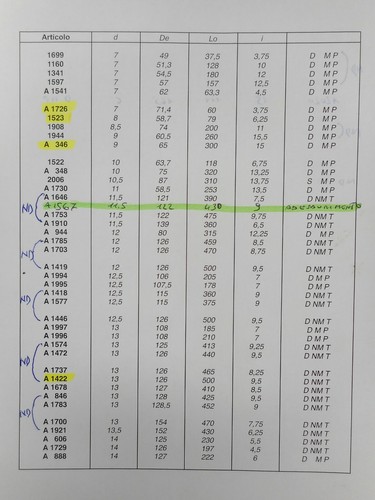 Articolo d De Lo i
1699 7 49 37,5 3,75 D M P
1160 7 51,3 128 10 D M P
1341 7 54,5 180 12 D M P
1597 7 57 157 12,5 D M P
A 1541 7 62 63,3 4,5 D M P
A 1726 7 71,4 60 3,75 D M P
1523 8 58,7 79 6,25 D M P
1908 8,5 74 200 11 D M P
1944 9 60,5 260 15,5 D M P
A 346 9 65 300 15 D M P
1522 10 63,7 118 6,75 D M P
A 348 10 75 320 13,25 D M P
2006 10,5 87 310 13,75 S M P
A 1730 11 58,5 253 13,5 D M P
A 1646 11,5 121 390 7,5 D N M T
A 1567 11,5 122 430 9
A 1753 11,5 122 475 9,75 D N M T
A 1910 11,5 139 360 6,5 D N M T
A 944 12 80 315 12,25 D M P
A 1785 12 126 459 8,5 D N M T
A 1703 12 126 470 8,75 D N M T
A 1419 12 126 500 9,5 D N M T
A 1994 12,5 106 205 7 D M P
A 1995 12,5 107,5 178 7 D M P
A 1418 12,5 115 360 9 D N M T
A 1577 12,5 115 375 9 D N M T
A 1446 12,5 126 500 9,5 D N M T
A 1997 13 108 185 7 D M P
A 1996 13 108 210 7 D M P
A 1574 13 125 413 9,25 D N M T
A 1472 13 126 440 9,5 D N M T
A 1737 13 126 465 8,25 D N M T
A 1422 13 126 500 9,5 D N M T
A 1678 13 127 410 8,5 D N M T
A 846 13 128 425 9,5 D N M T
A 1783 13 128,5 452 9 D N M T
A 1700 13 154 470 7,75 D N M T
A 1921 13,5 152 430 6,25 D N M T
A 606 14 125 230 5,5 D N M T
A 1729 14 126 197 4,5 D N M T
A 888 14 127 222 6 D M P
ND
ND
ND
ND
ND